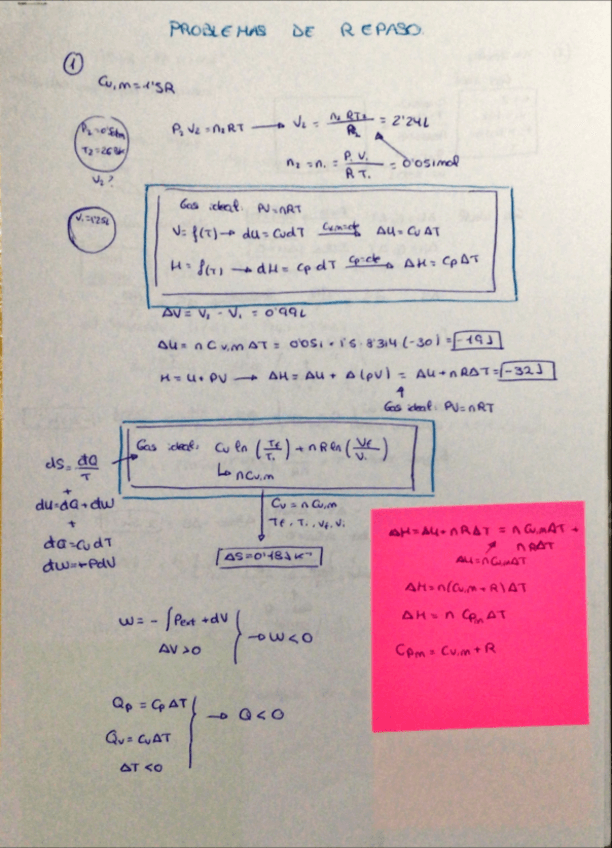 PROBLEMAS DE REPASO.
①
Cv,m=1'5R
P2=0'5atm
T2=268K
V2?
P2V2=n2RT → V2 = n2RT2/P2 = 2'24L
n2=n1 = P1V1/RT1 = 0'051mol
V1=1'25L
Gas ideal: PV=nRT
V=f(T) → dU=CvdT Cv,m=cte → ΔU=CvΔT
H=f(T) → dH=CpdT Cp=cte → ΔH=CpΔT
ΔV=V2-V1=0'99L
ΔU=nCv,mΔT=0'051·1'5·8'314(-30)=-19J
H=U+PV → ΔH=ΔU+Δ(PV)=ΔU+nRΔT=-32J
Gas ideal: PV=nRT
Gas ideal: Cv ln (Tf/Ti) + nR ln (Vf/Vi)
↳ nCv,m
dS=dQ/T
+
dU=dQ+dW
+
dQ=CvdT
dW=-PdV
Cv=nCv,m
Tf, Ti, Vf, Vi
ΔS=0'18JK⁻¹
ΔH=ΔU+nRΔT=nCv,mΔT+
nRΔT
ΔU=nCv,mΔT
ΔH=n(Cv,m+R)ΔT
ΔH=n Cpm ΔT
Cpm=Cv,m+R
W=-∫Pext+dV
ΔV>0
→ W<0
Qp=CpΔT
Qv=CvΔT
ΔT<0
→ Q<0